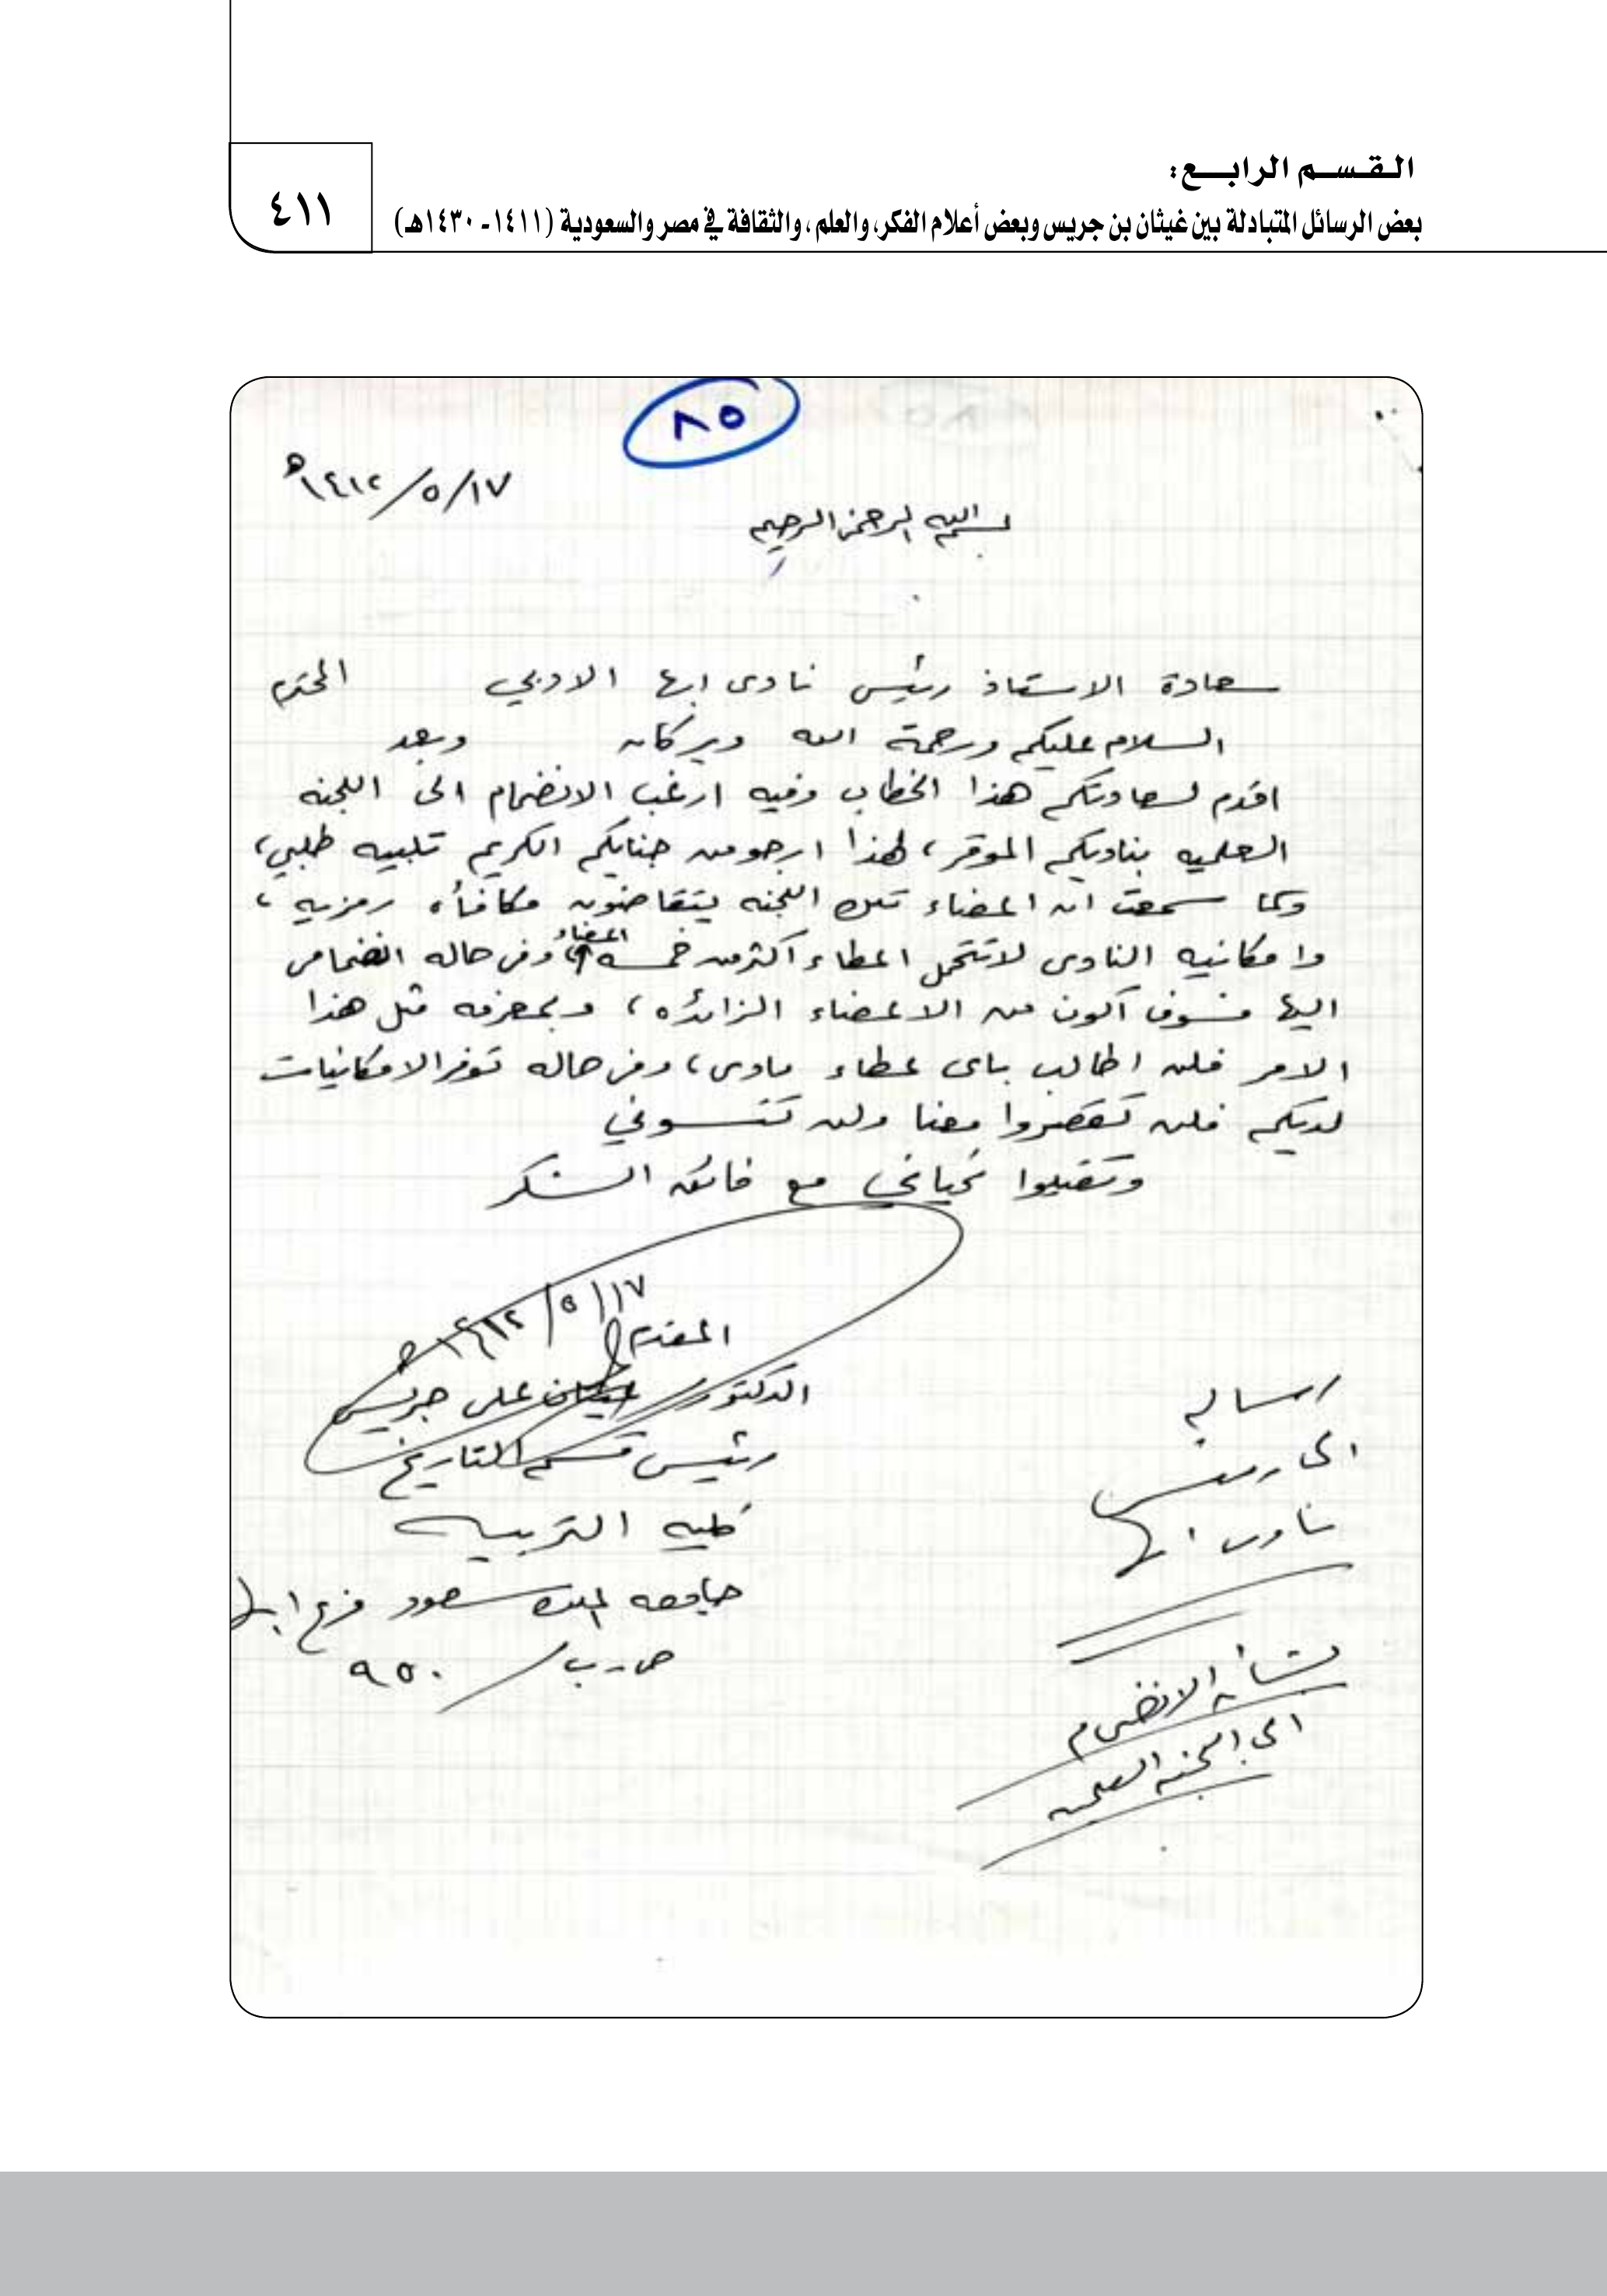 القسم الرابع:
بعض الرسائل المتبادلة بين غيثان بن جريس وبعض أعلام الفكر، والعلم، والثقافة في مصر والسعودية (١٤١١-١٤٣٠هـ)
٤١١
٨٥
١٤١٢/٥/١٧هـ
بسم الله الرحمن الرحيم
سعادة الاستاذ رئيس نادى ابها الادبي المحترم
السلام عليكم ورحمة الله وبركاته وبعد
اقدم لسعادتكم هذا الخطاب وفيه ارغب الانضمام الى اللجنه
العلميه بناديكم الموقر، لهذا ارجو من جنابكم الكريم تلبيه طلبي،
وكما سمعت ان اعضاء تلك اللجنه يتقاضون مكافأه رمزيه،
وامكانيه النادى لاتتحمل اعطاء اكثر من خمسه اعضاء وفى حاله انضمامى
اليها فسوف اكون من الاعضاء الزائده، وبمعرفه مثل هذا
الامر فلن اطالب باى عطاء مادى، وفى حاله توفر الامكانيات
لديكم فلن تقصروا معنا ولن تنسوني
وتقبلوا تحياتي مع فائق الشكر
١٤١٢/٥/١٧هـ
المقدم
الدكتور غيثان على جريس
رئيس قسم التاريخ
كليه التربيه
جامعه الملك سعود فرع ابها
ص.ب/ ٩٥٠
رساله
الى رئيس
نادى ابها
بشأن الانضمام
الى اللجنه العلميه